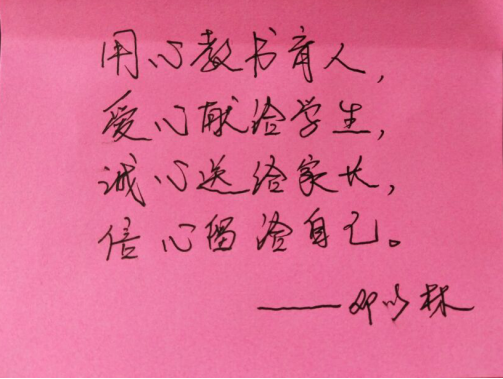 用心教书育人，
爱心献给学生，
诚心送给家长，
信心留给自己。
——邓以林